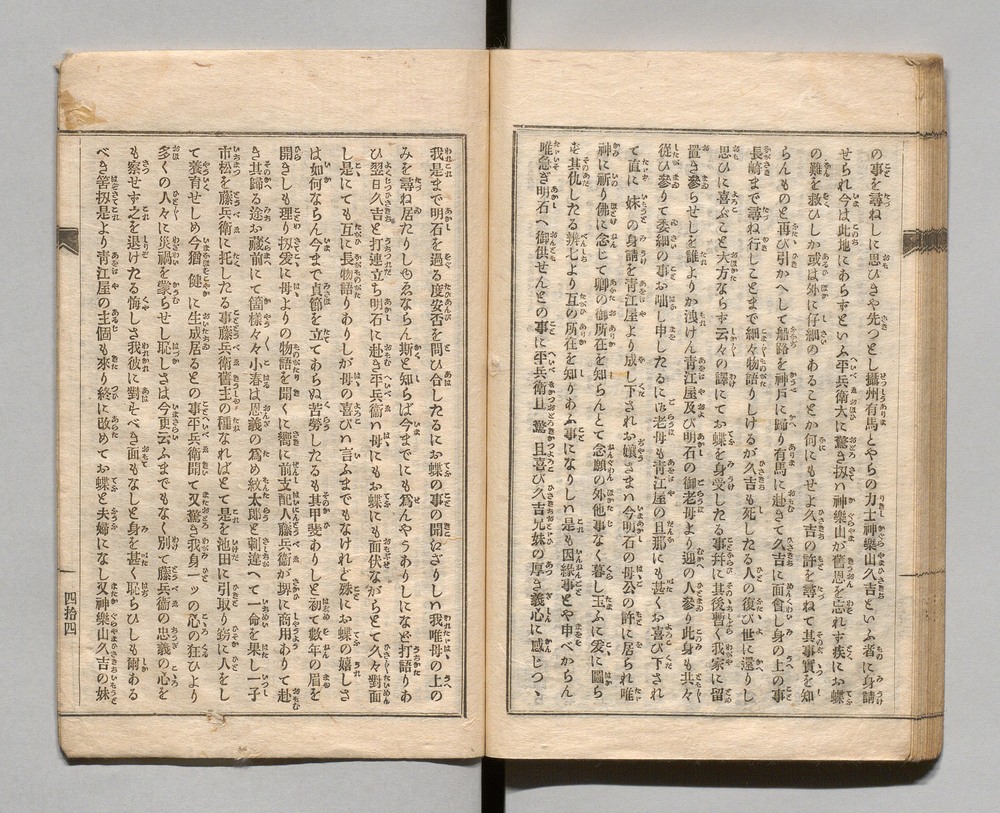 の事を尋ねしに思ひきや先つとし攝州有馬とやらの力士神樂山久吉といふ者に身請
せられ今は此地にあらずといふ平兵衛大に驚き扨ハ神樂山が舊恩を忘れず疾にお蝶
の難を救ひしか或は外に仔細のあることか何にもせよ久吉の許を尋ねて其事實を知
らんものと再び引かへして船路を神戸に歸り有馬に赴きて久吉に面會し身の上の事
長﨑まで尋ね行しことまで細々物語りしけるが久吉も死したる人の復び世に還りし
思ひに喜ぶこと大方ならず云々の譯にてお蝶を身受したる事并に其後暫く我家に留
置き參らせしを誰よりか洩けん青江屋及び明石の御老母より迎の人參り此身も共々
從ひ參りて委細の事お咄し申したるに御老母も青江屋の且那にも甚くお喜び下され
て直に妹の身請を青江屋より成し下されお孃さまハ今明石の母公の許に居られ唯
神に祈り佛に念じて卿の御所在を知らんとて念願の外他事なく暮し玉ふに爰に圖ら
ず其仇したる辨七より互の所在を知りあふ事になりしハ是も因縁事とや申べからん
唯急ぎ明石へ御供せんとの事に平兵衛且驚且喜び久吉兄妹の厚き義心に感じつゝ
我是まで明石を過る度安否を問ひ合したるにお蝶の事の聞ゑざりしハ我唯母の上の
みを尋ね居たりしゆゑならん斯と知らば今までにも爲んやうありしになど打語りあ
ひ翌日久吉と打連立ち明石に赴き平兵衛ハ母にもお蝶にも面伏ながらとて久々對面
し是にても互に長物語りありしが母の喜びハ言ふまでもなけれど殊にお蝶の嬉しさ
は如何ならん今まで貞節を立てあらぬ苦勞したるも其甲斐ありしと初て數年の眉を
開きしも理り扨爰に母よりの物語を聞くに嚮に前支配人藤兵衛が堺に商用ありて赴
き其歸る途お藏前にて箇樣々々小春は恩義の爲め紋太郎と刺違へて一命を果し一子
市松を藤兵衛に托したる事藤兵衛舊主の種なればとて是を池田に引取り竊に人をし
て養育せしめ今猶健に生成居るとの事平兵衛聞て又驚き我身一ッの心の狂ひより
多くの人々に災禍を蒙らせし恥しさは今更云ふまでもなく別て藤兵衛の忠義の心を
も察せず之を退けたる悔しさ我彼に對すべき面もなしと身を甚く恥らひしも爾ある
べき筈扨是より青江屋の主個も來り終に改めてお蝶と夫婦になし又神樂山久吉の妹
四拾四